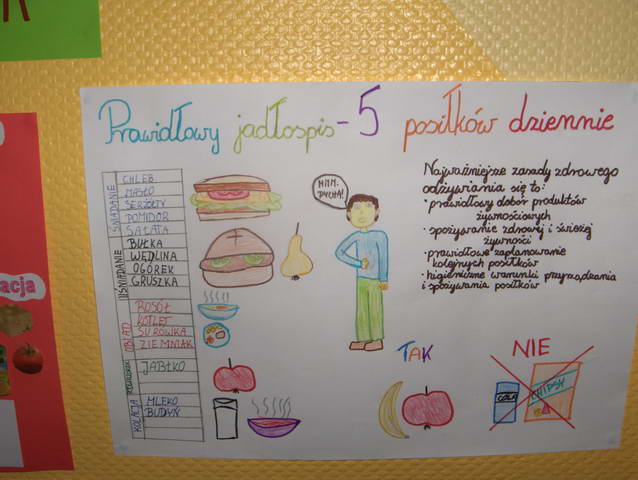 R
acja
Prawidłowy jadłospis - 5 posiłków dziennie
ŚNIADANIE
CHLEB
MASŁO
SER ŻÓŁTY
POMIDOR
SAŁATA
II ŚNIADANIE
BUŁKA
WĘDLINA
OGÓREK
GRUSZKA
OBIAD
ROSÓŁ
KOTLET
SURÓWKA
ZIEMNIAK
JABŁKO
KOLACJA
MLEKO
BUDYŃ
MNM.
PYCHA!
Najważniejsze zasady zdrowego
odżywiania się to:
• prawidłowy dobór produktów
żywnościowych
• spożywanie zdrowej i świeżej
żywności
• prawidłowe zaplanowanie
kolejnych posiłków
• higieniczne warunki przyrządzania
i spożywania posiłków
TAK
NIE
COLA
CHIPSY